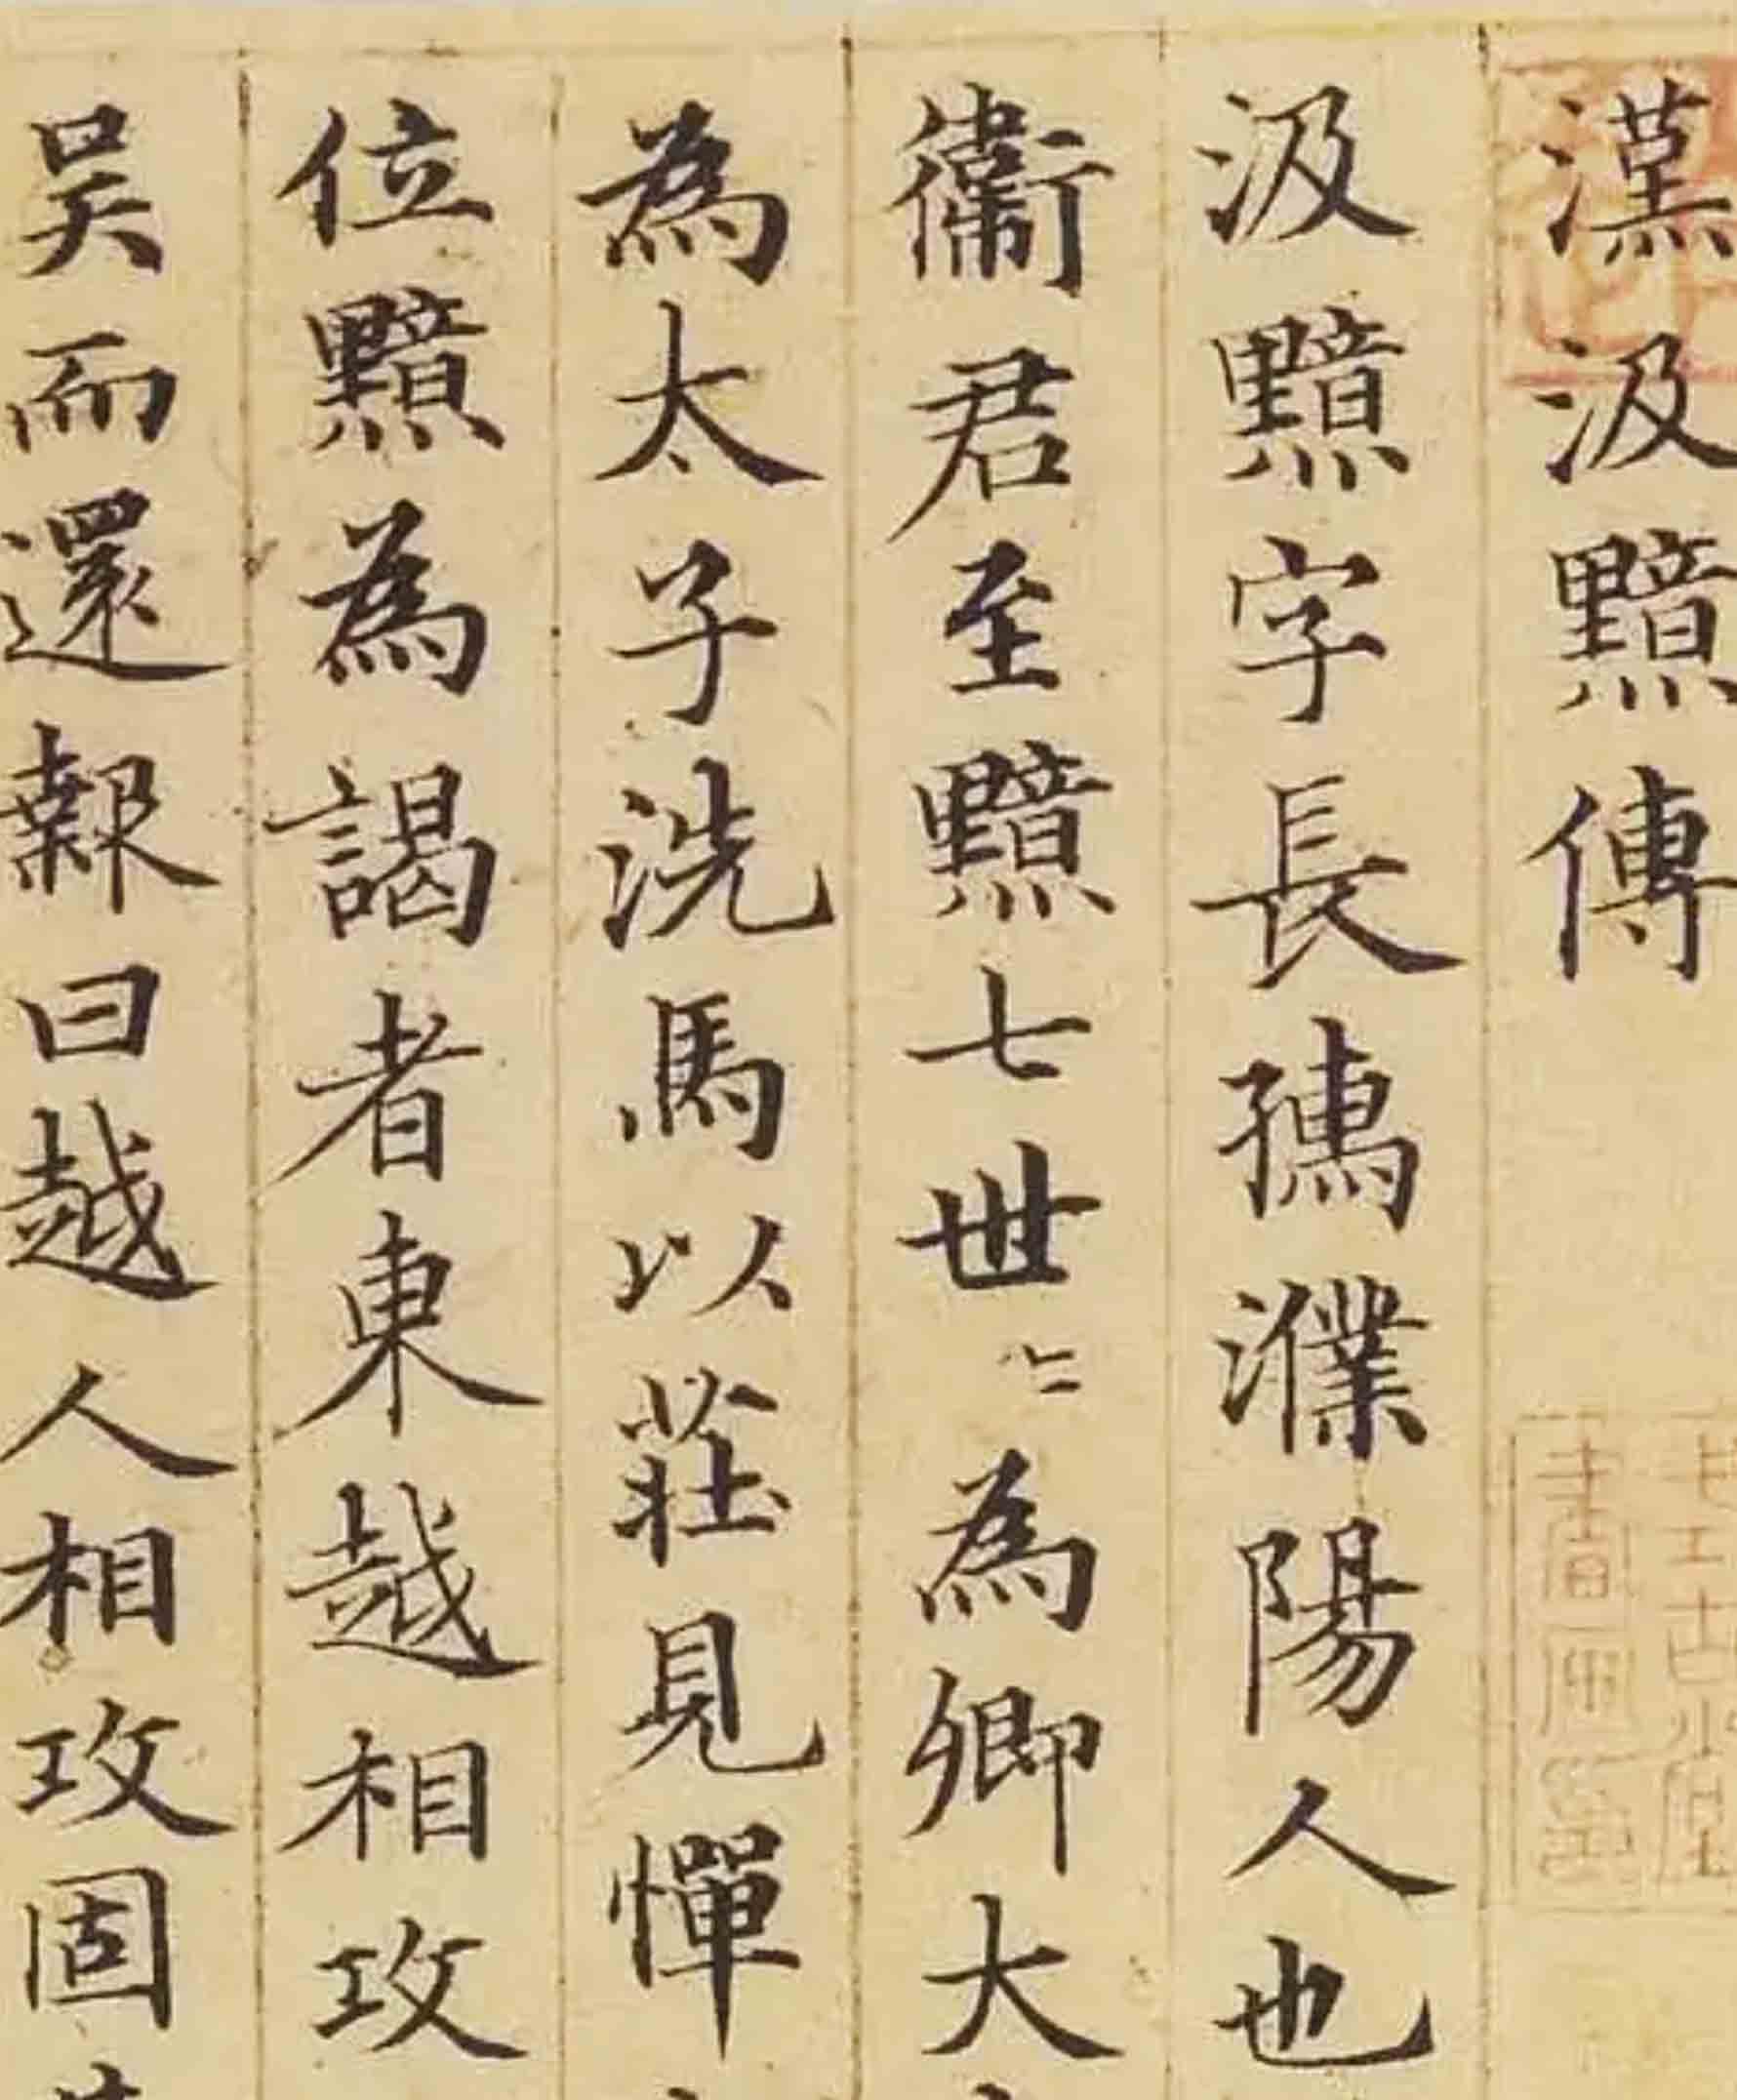 漢汲黯傳
汲黯字長孺濮陽人也
衛君至黯七世〻為卿大
為太子洗馬以莊見憚
位黯為謁者東越相攻
吴而還報曰越人相攻固